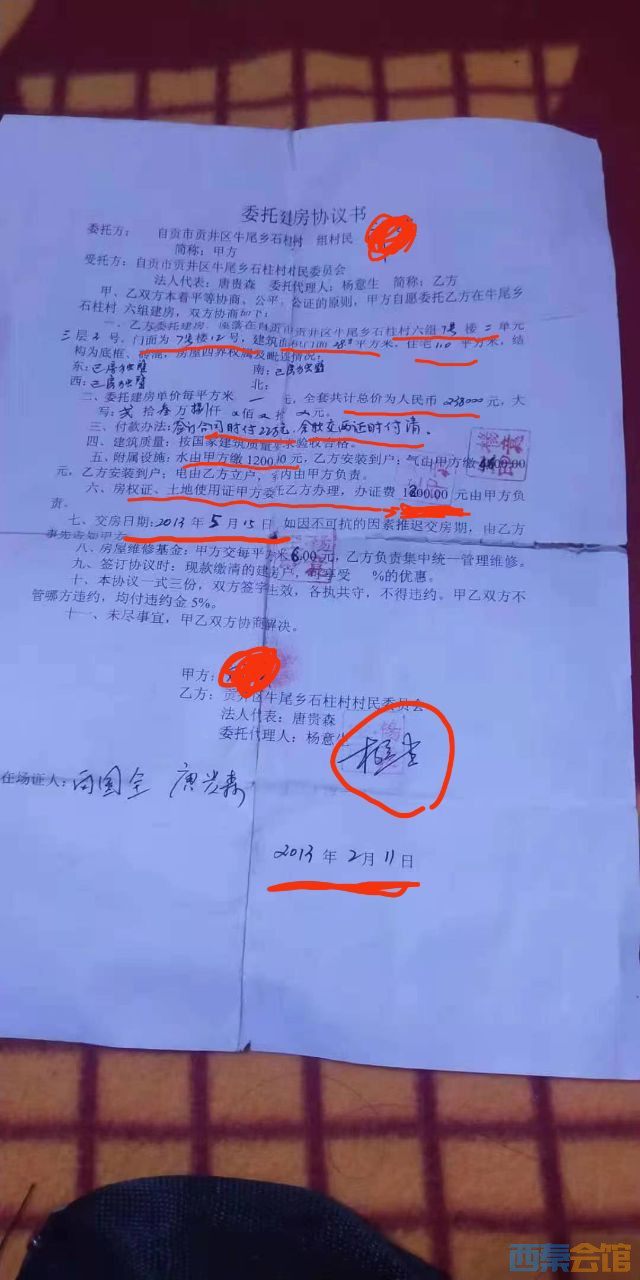 委托建房协议书
委托方： 自贡市贡井区牛尾乡石柱村 组村民
简称：甲方
受托方：自贡市贡井区牛尾乡石柱村村民委员会
法人代表：唐贵森 委托代理人：杨意生 简称：乙方
甲、乙双方本着平等协商、公平、公证的原则，甲方自愿委托乙方在牛尾乡
石柱村 六组建房，双方协商如下：
一、乙方委托建房，座落在自贡市贡井区牛尾乡石柱村六组7号楼二单元
三层2号。门面为7号楼12号，建筑面积门面 平方米，住宅110平方米，结
构为底框、砖混，房屋四界权属及毗连情况：
东：已房独壁 南：已房独壁
西：已房独壁 北：
二、委托建房单价每平方米 一 元，全套共计总价为人民币238000元，大
写：贰拾叁万捌仟 佰 拾 元。
三、付款办法：签订合同时付22万元，余款交两证时付清。
四、建筑质量：按国家建筑质量要求验收合格。
五、附属设施：水由甲方缴1200.00元，乙方安装到户；气由甲方缴 00.00
元，乙方安装到户；电由乙方立户，室内由甲方负责。
六、房权证、土地使用证甲方委托乙方办理，办证费1800.00元由甲方负
责。
七、交房日期：2013年5月15日，如因不可抗的因素推迟交房期，由乙方
事先告知甲方。
八、房屋维修基金：甲方交每平方米6.00元，乙方负责集中统一管理维修。
九、签订协议时：现款缴清的建房户，可享受 %的优惠。
十、本协议一式三份，双方签字生效，各执共守，不得违约。甲乙双方不
管哪方违约，均付违约金5%。
十一、未尽事宜，甲乙双方协商解决。
甲方：
乙方：贡井区牛尾乡石柱村村民委员会
法人代表：唐贵森
委托代理人：杨意生
在场证人： 唐贵森
2013年2月11日
西秦会馆